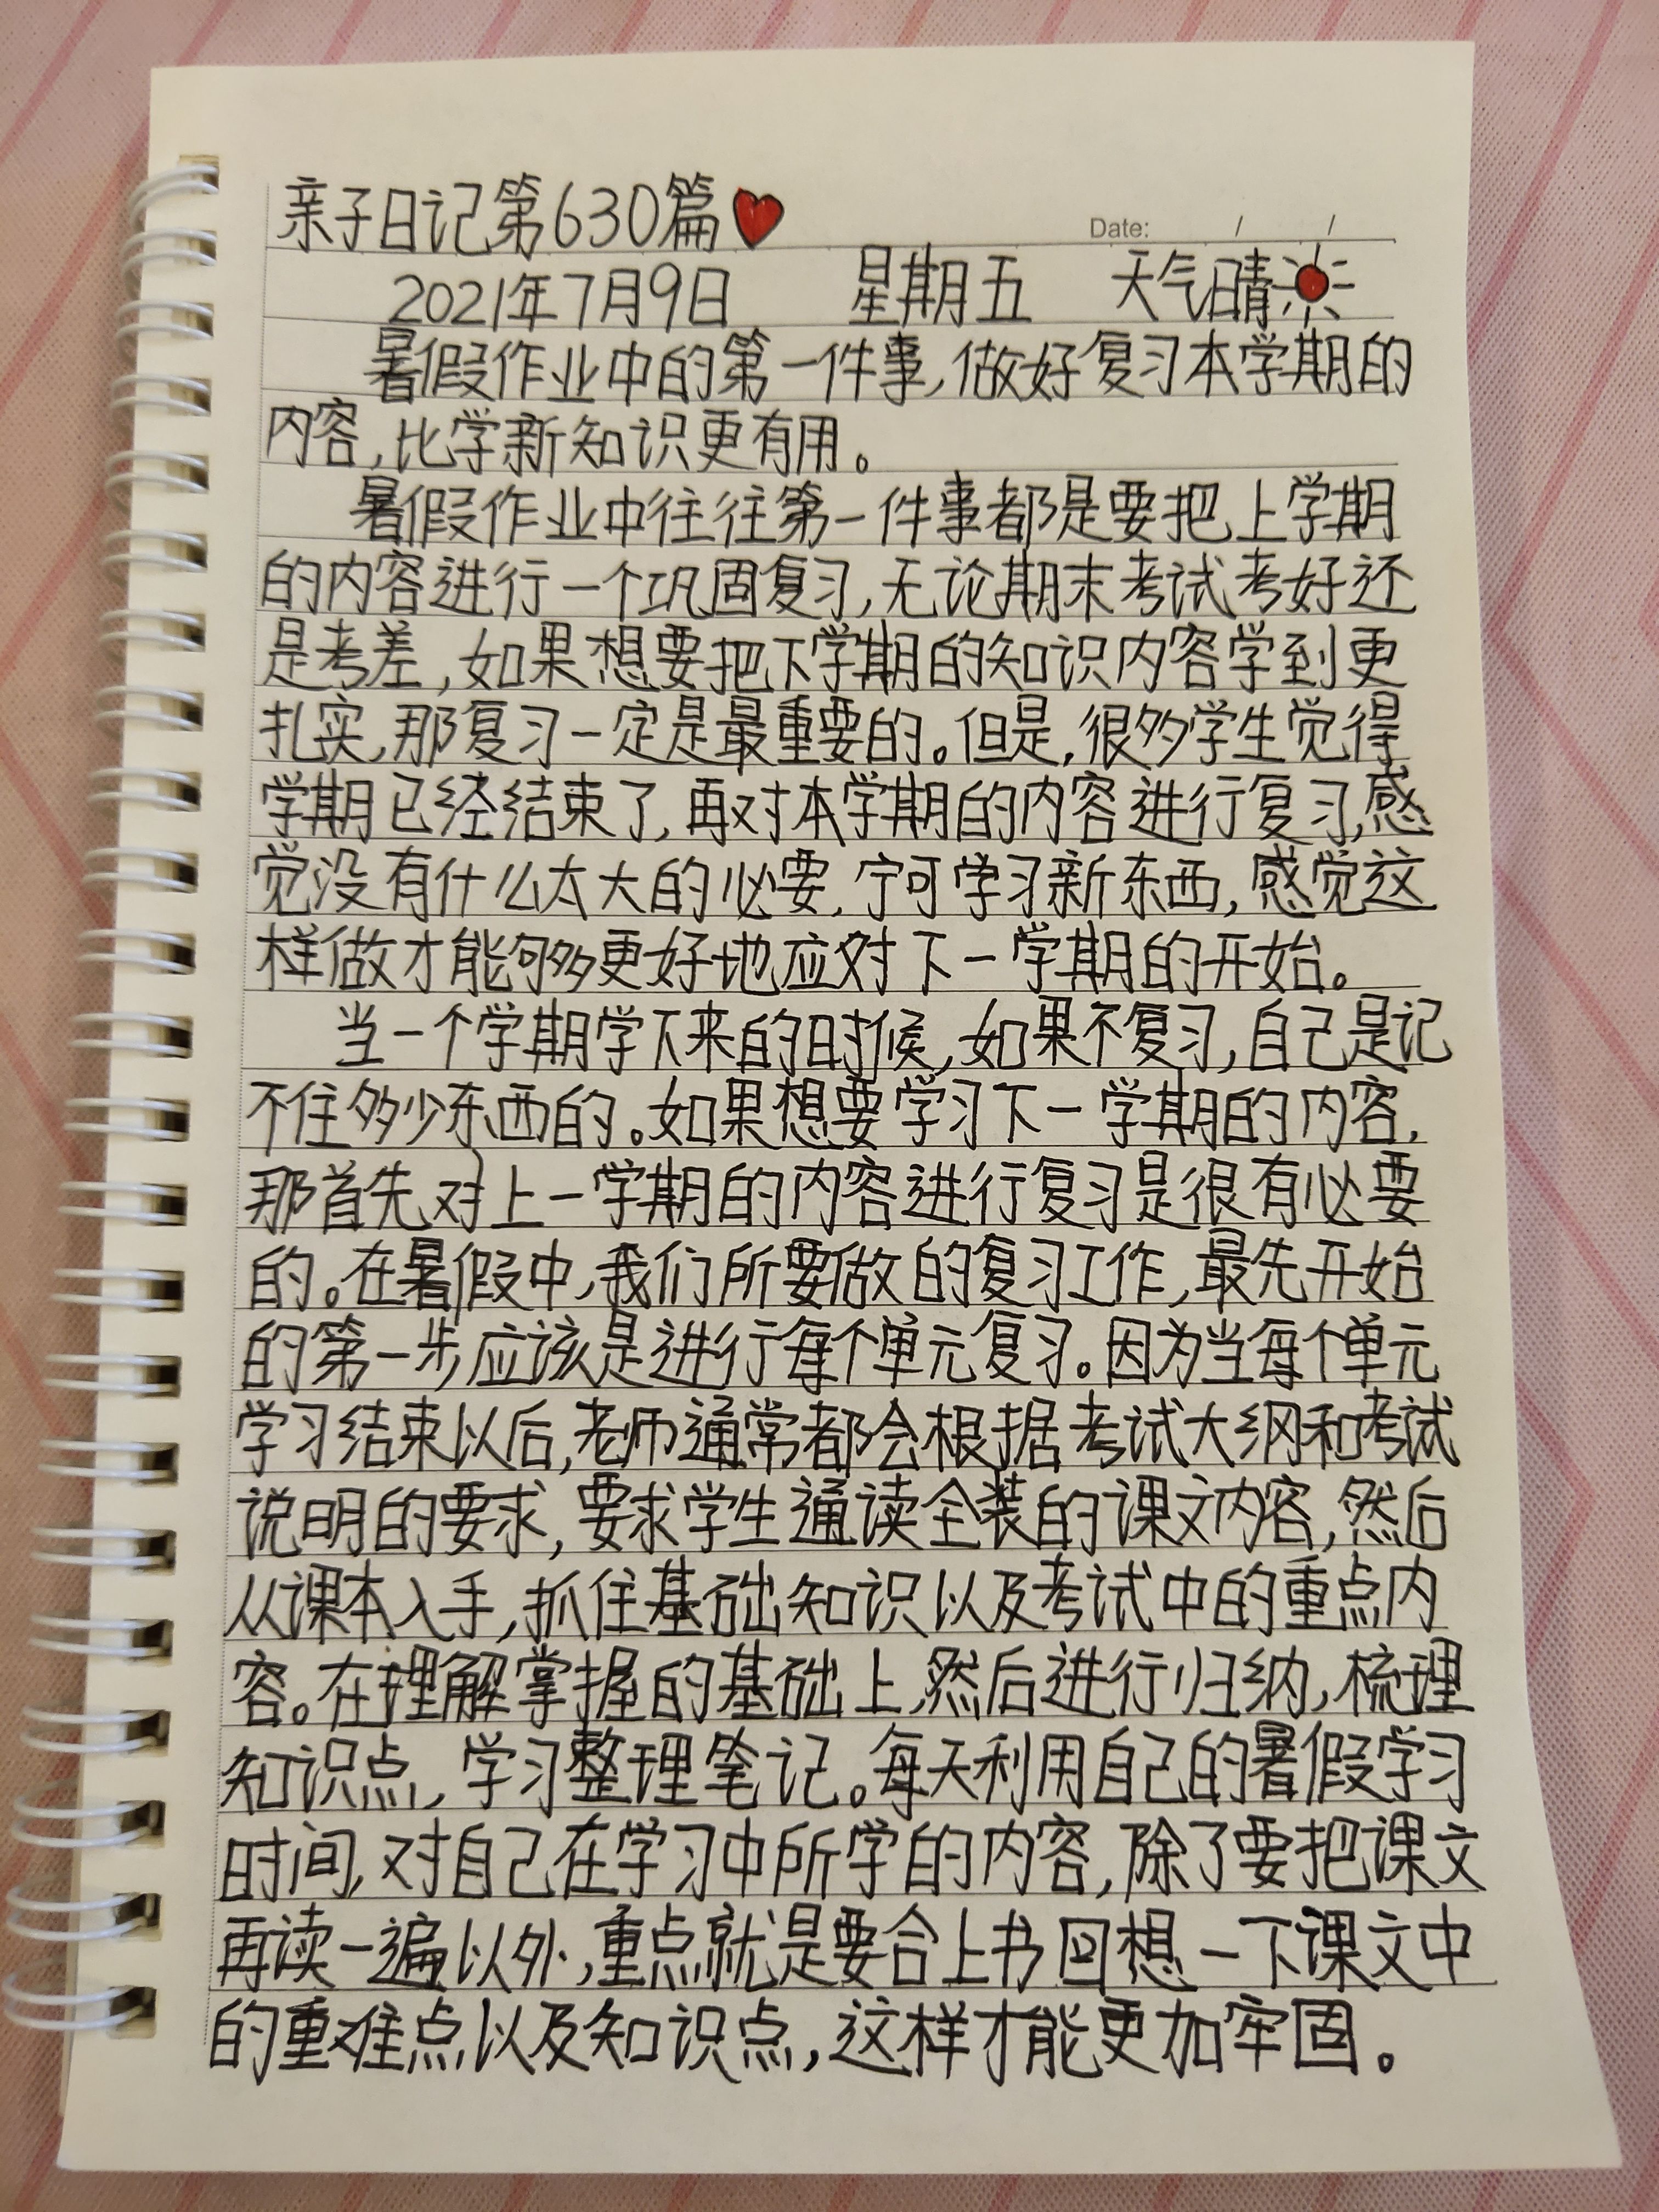 亲子日记第630篇
Date: / /
2021年7月9日 星期五 天气晴
暑假作业中的第一件事,做好复习本学期的
内容,比学新知识更有用。
暑假作业中往往第一件事都是要把上学期
的内容进行一个巩固复习,无论期末考试考好还
是考差,如果想要把下学期的知识内容学到更
扎实,那复习一定是最重要的。但是,很多学生觉得
学期已经结束了,再对本学期的内容进行复习,感
觉没有什么太大的必要,宁可学习新东西,感觉这
样做才能够更好地应对下一学期的开始。
当一个学期学下来的时候,如果不复习,自己是记
不住多少东西的。如果想要学习下一学期的内容,
那首先对上一学期的内容进行复习是很有必要
的。在暑假中,我们所要做的复习工作,最先开始
的第一步应该是进行每个单元复习。因为当每个单元
学习结束以后,老师通常都会根据考试大纲和考试
说明的要求,要求学生通读全装的课文内容,然后
从课本入手,抓住基础知识以及考试中的重点内
容。在理解掌握的基础上,然后进行归纳,梳理
知识点,学习整理笔记。每天利用自己的暑假学习
时间,对自己在学习中所学的内容,除了要把课文
再读一遍以外,重点就是要合上书回想一下课文中
的重难点以及知识点,这样才能更加牢固。